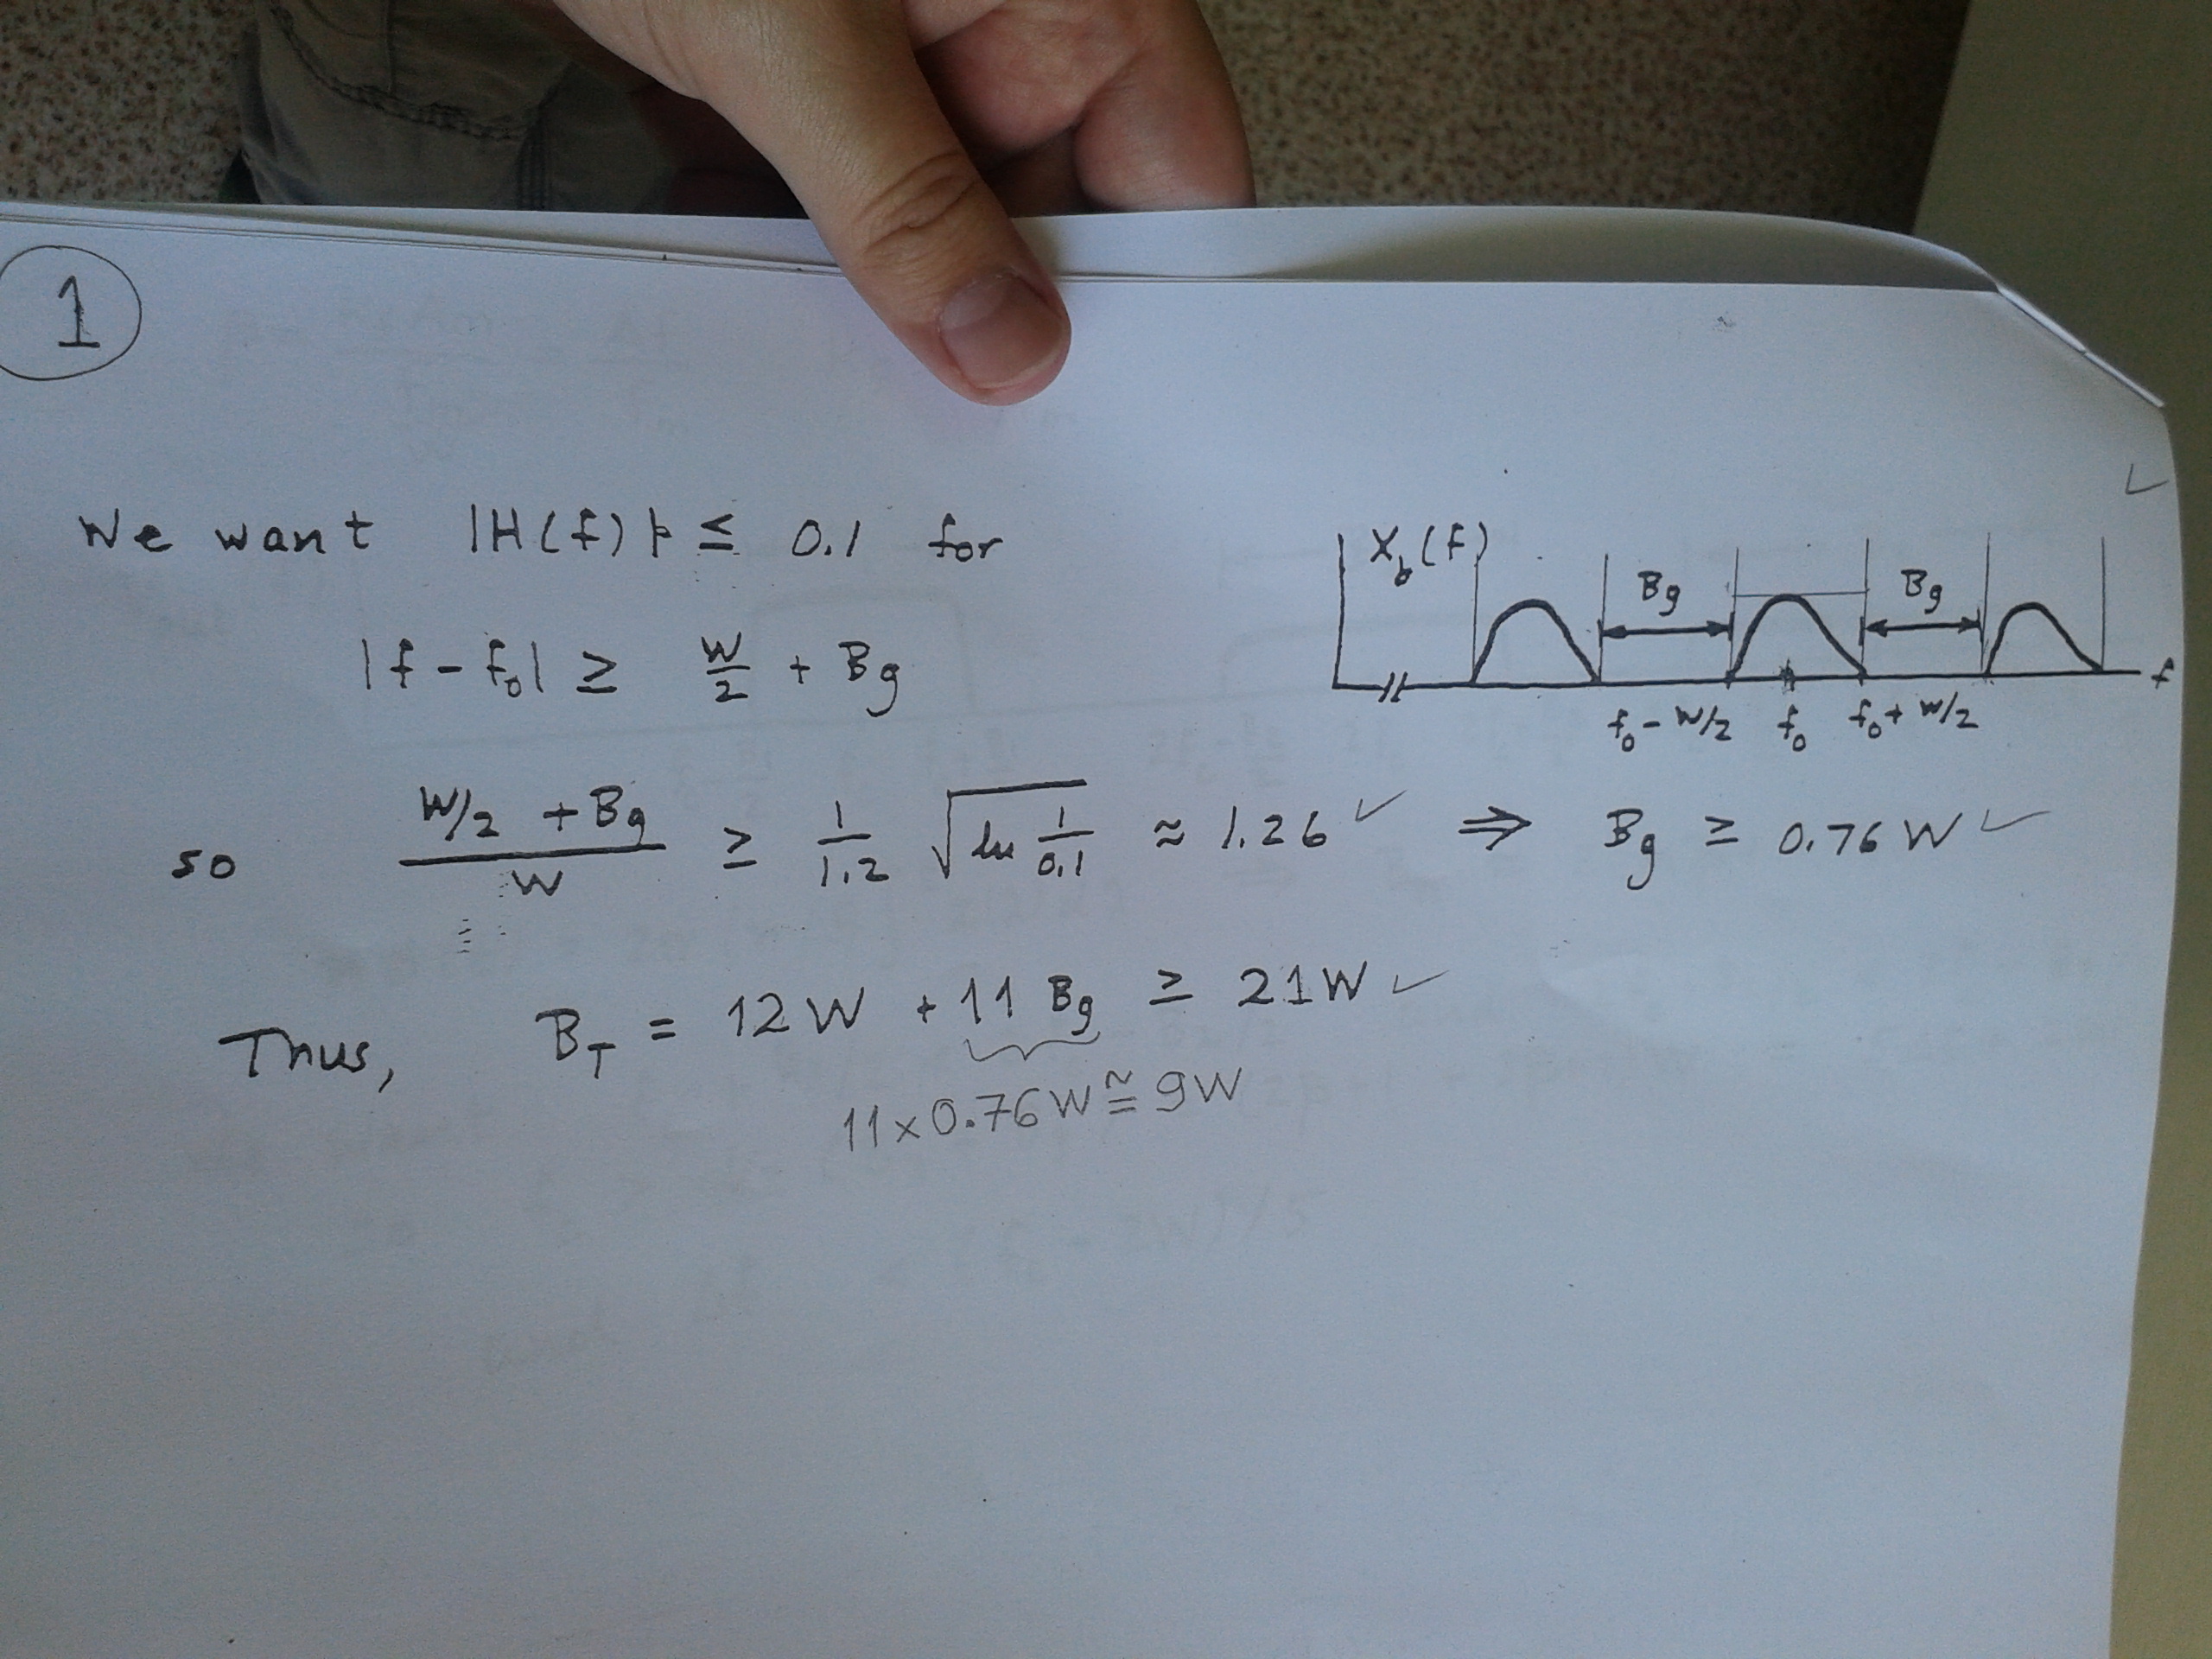 1
We want |H(f)| ≤ 0.1 for
|f - f₀| ≥ W/2 + Bg
X_b(f)
Bg Bg
f
f₀ - W/2 f₀ f₀ + W/2
so (W/2 + Bg)/W ≥ 1/1.2 √(ln 1/0.1) ≈ 1.26 ✓ ⇒ Bg ≥ 0.76 W ✓
Thus, B_T = 12 W + 11 Bg ≥ 21 W ✓
11 × 0.76 W ≅ 9W